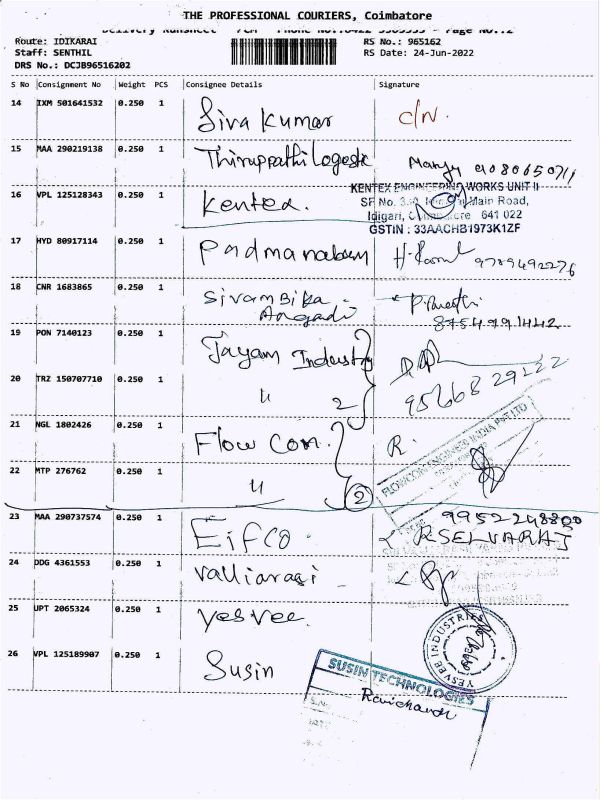 THE PROFESSIONAL COURIERS, Coimbatore
Route: IDIKARAI RS No.: 965162
Staff: SENTHIL RS Date: 24-Jun-2022
DRS No.: DCJB96516202
S No Consignment No Weight PCS Consignee Details Signature
14 IXM 501641532 0.250 1 Siva Kumar C/N.
15 MAA 290219138 0.250 1 Thiruppathi Logesh
KENTEX ENGINEERING WORKS UNIT II
16 VPL 125128343 0.250 1 Kentex. SF No. Main Road,
Idigari, Coimbatore 641 022
GSTIN : 33AACHB1973K1ZF
17 HYD 80917114 0.250 1 Padmanaban 9789492276
18 CNR 1683865 0.250 1 Sivambika
Angadi
19 PON 7140123 0.250 1 Jayam Industry
20 TRZ 150707710 0.250 1 " 2 9566829222
21 NGL 1802426 0.250 1 Flow Con. R.
22 MTP 276762 0.250 1 " 2
9952248800
23 MAA 290737574 0.250 1 Eifco. R SELVARAJ
24 DDG 4361553 0.250 1 Valliarasi
25 UPT 2065324 0.250 1 Yesvee YESVEE INDUSTRIES
26 VPL 125189907 0.250 1 Susin SUSIN TECHNOLOGIES
Ravichandr